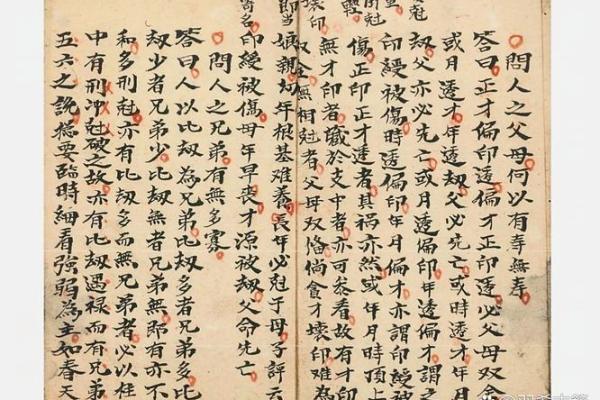 問人之父母何以有壽無壽
答曰正才偏印透偏才正印透必父母双全
或月透才年透刼父必先亡或時透才年月
刼父亦必先亡或月透偏印年透偏才謂之
印綬被傷時透偏印年月偏才亦謂印綬被
傷正印正才透者其禍亦然或年月時頂上
無才印者藏於支中者亦可叅看故有才印
双全無相尅者父母双俻倘貪才壞印难為
娘親幼年根基难養長年必尅子母子評云
印綬被傷母年早丧才源被刼父命先亡
問人之兄弟有無多寡
答曰人以比刼為兄弟比刼多者兄弟多比
刼少者兄弟少比刼無者兄弟無即有亦不
和多刑尅亦有比刼多而無兄弟者必以柱
中有刑冲尅破之故亦有比刼遇禄而有兄弟
五六之說摠要臨時細看強弱為主如春天